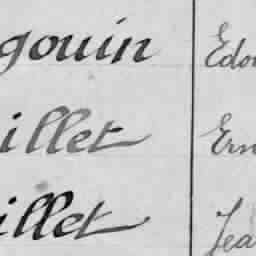 gouin Edou
illet Ern
illet Jea